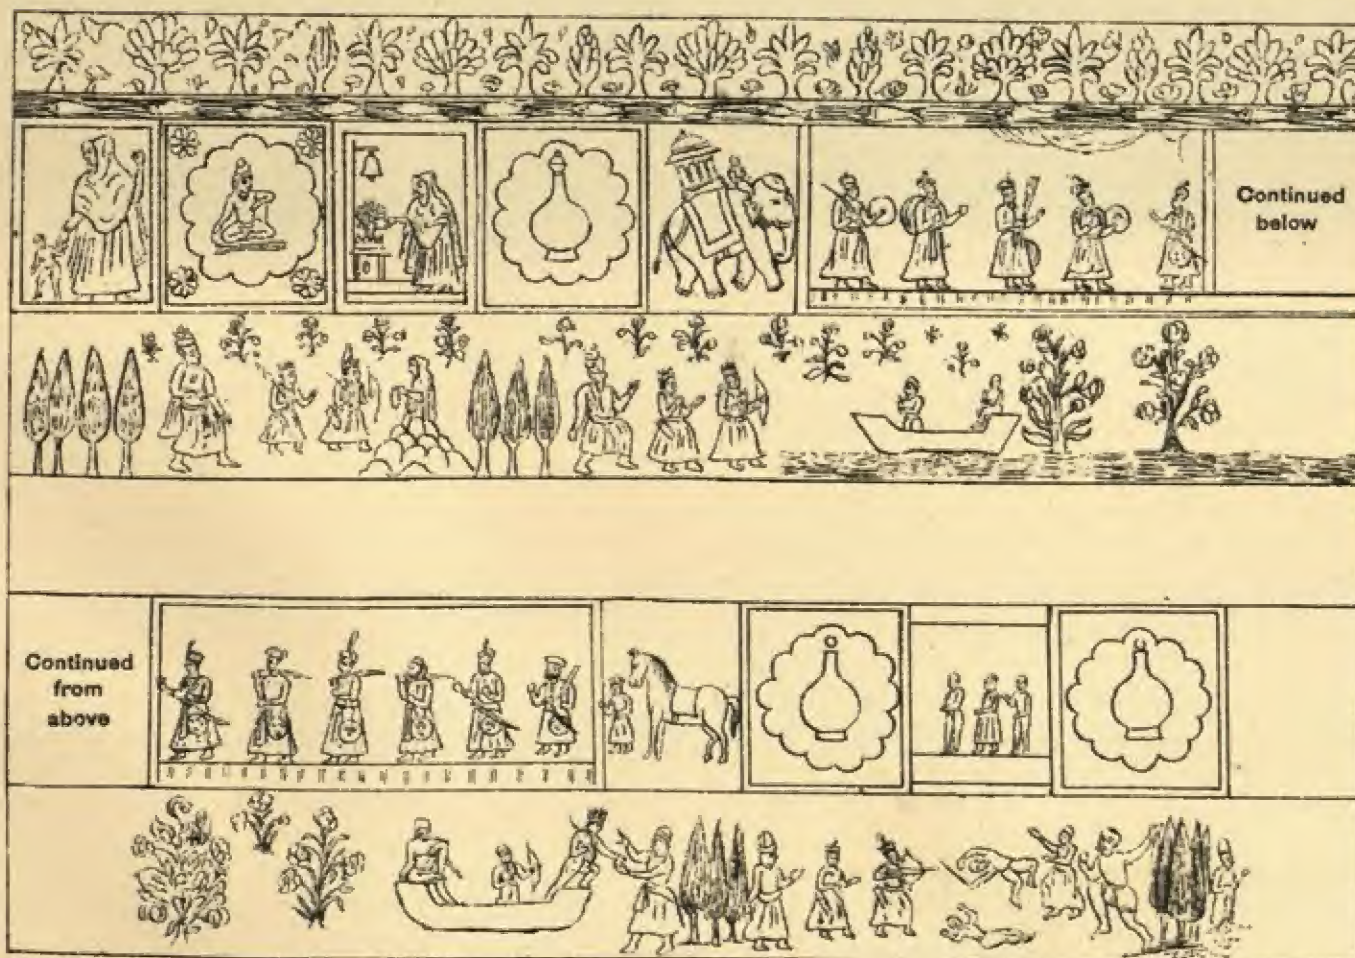 Continued
below
Continued
from
above